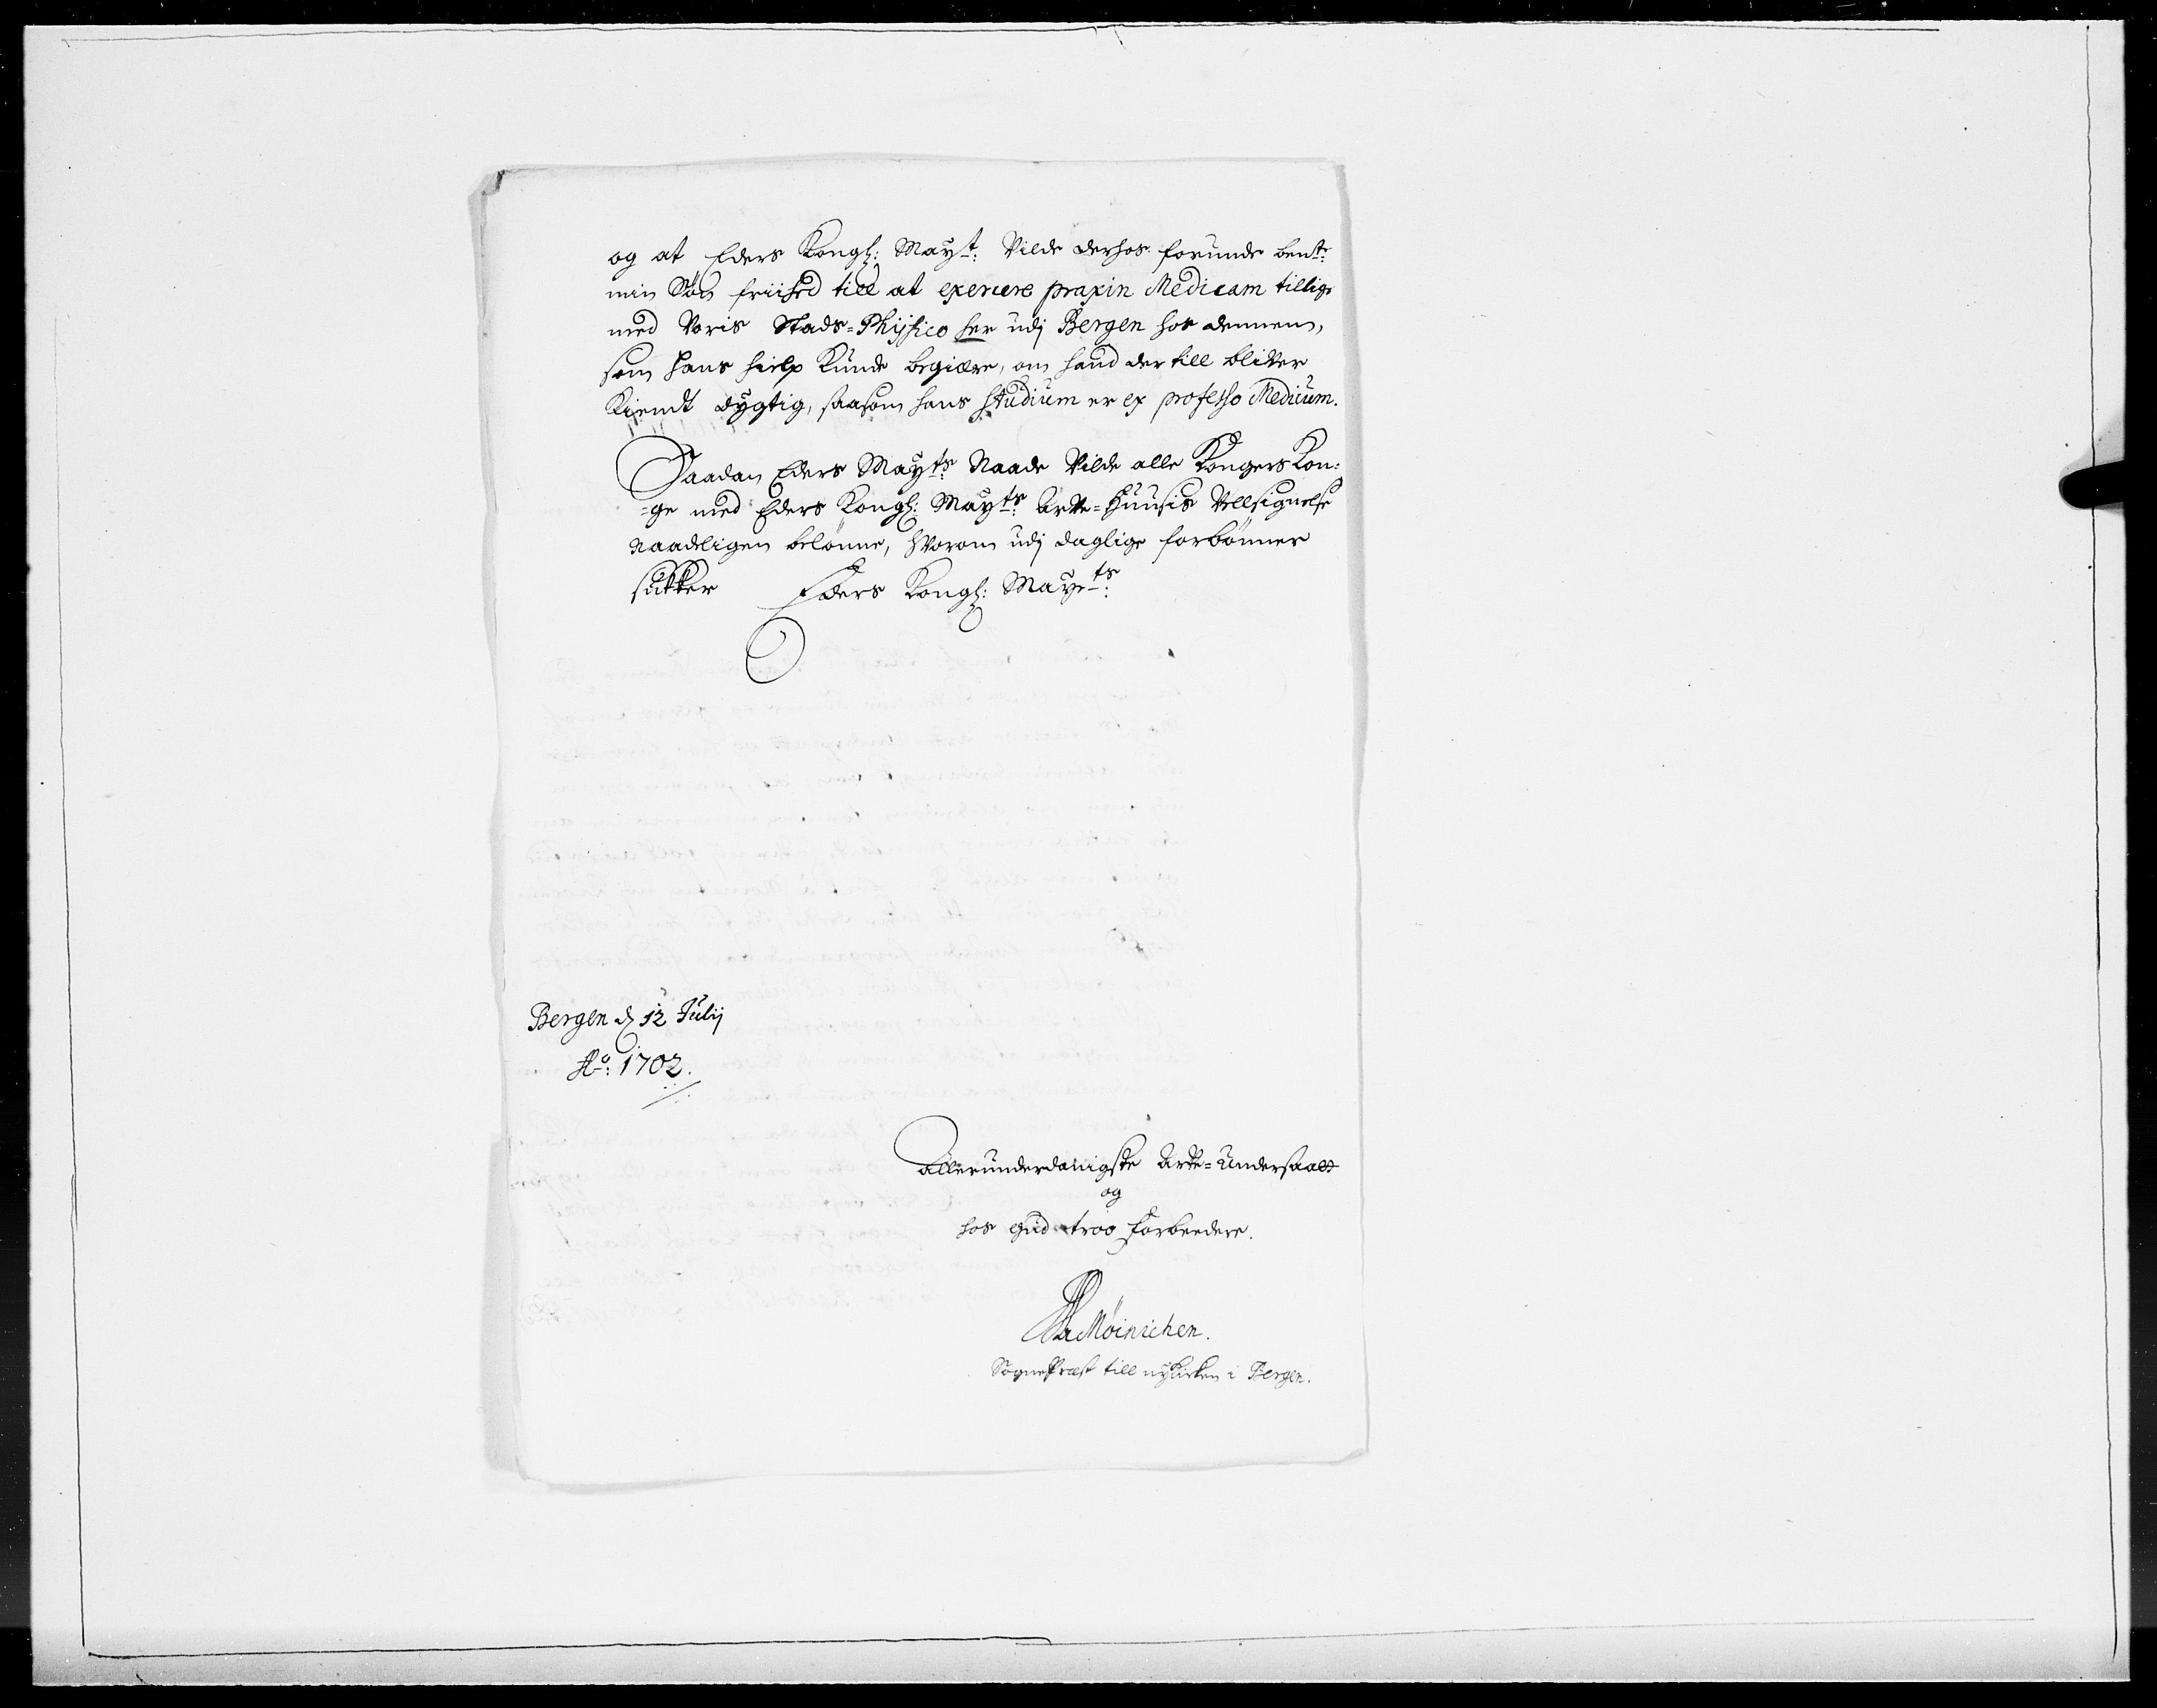 og at Eders Kongl: Mayt: Vilde derhos forunde bente:
min Søn friihed till at exercere praxin Medicam tillige
med Voris Stads=Phijsico her udj Bergen hos dennem,
som hans hielp Kunde begiære, om hand der till bliver
Kiendt dygtig, saasom hans studium er ex professo Medicum.
Saadan Eders Mayts: Naade Vilde alle Kongers Kon=
=ge med Eders Kongl: Mayts: Arve=Huusis Vellsignelse
Naadeligen belønne, hvorom udj daglige forbønner
sukker Eders Kongl: Mayts:
Bergen d 12 Julij
Ao: 1702.
Allerunderdanigste Arve=Undersaatt
og
hos Gud troo forbeedere.
Møinichen.
SognePræst till nykirken i Bergen.